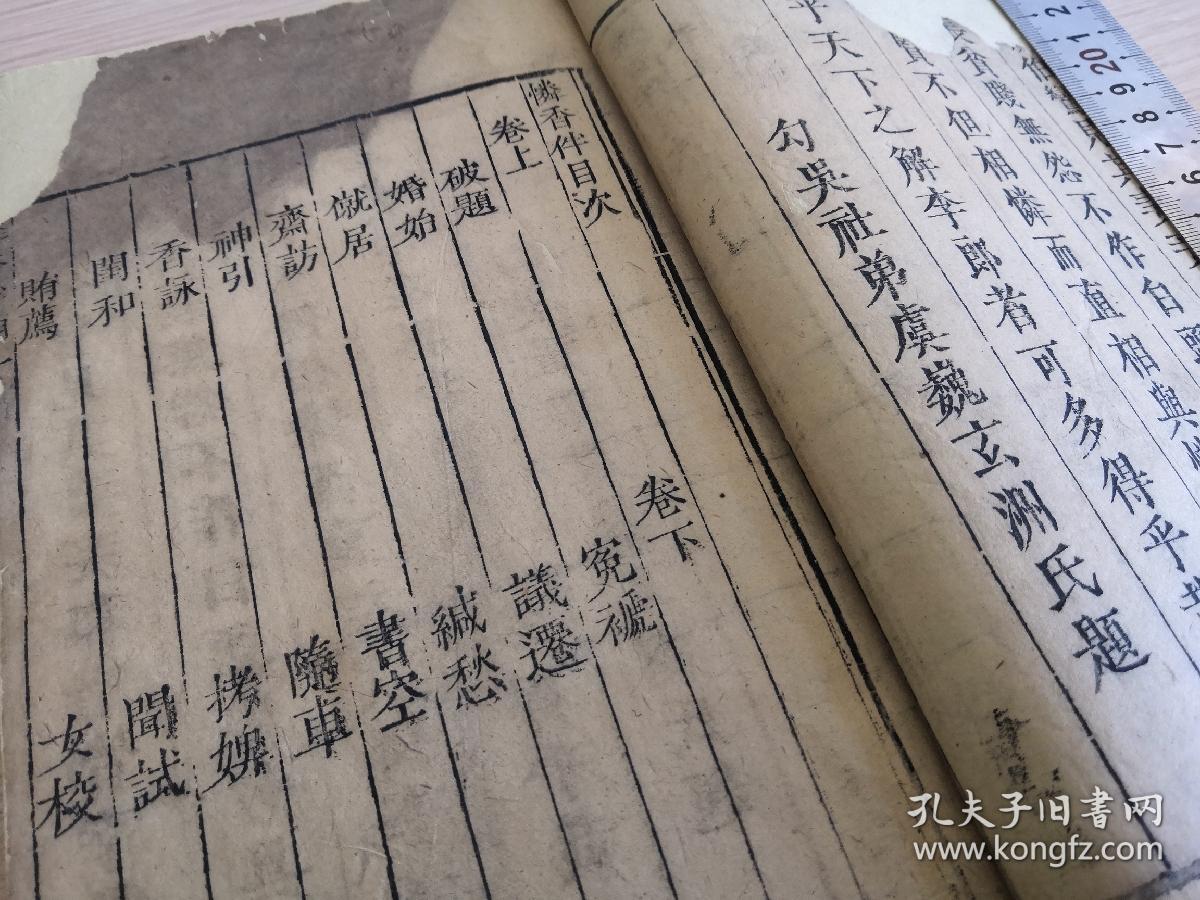 貧賤無怨不作自
但相憐而直相與
平天下之解李郎者可多得乎
勾吳社弟虞巍玄洲氏題
憐香伴目次
卷上
卷下
破題
冤褫
婚始
議遷
僦居
緘愁
齋訪
書空
神引
隨車
香詠
拷婢
閨和
聞試
賄薦
女校
孔夫子旧书网
www.kongfz.com
12
20
9
8
7
6